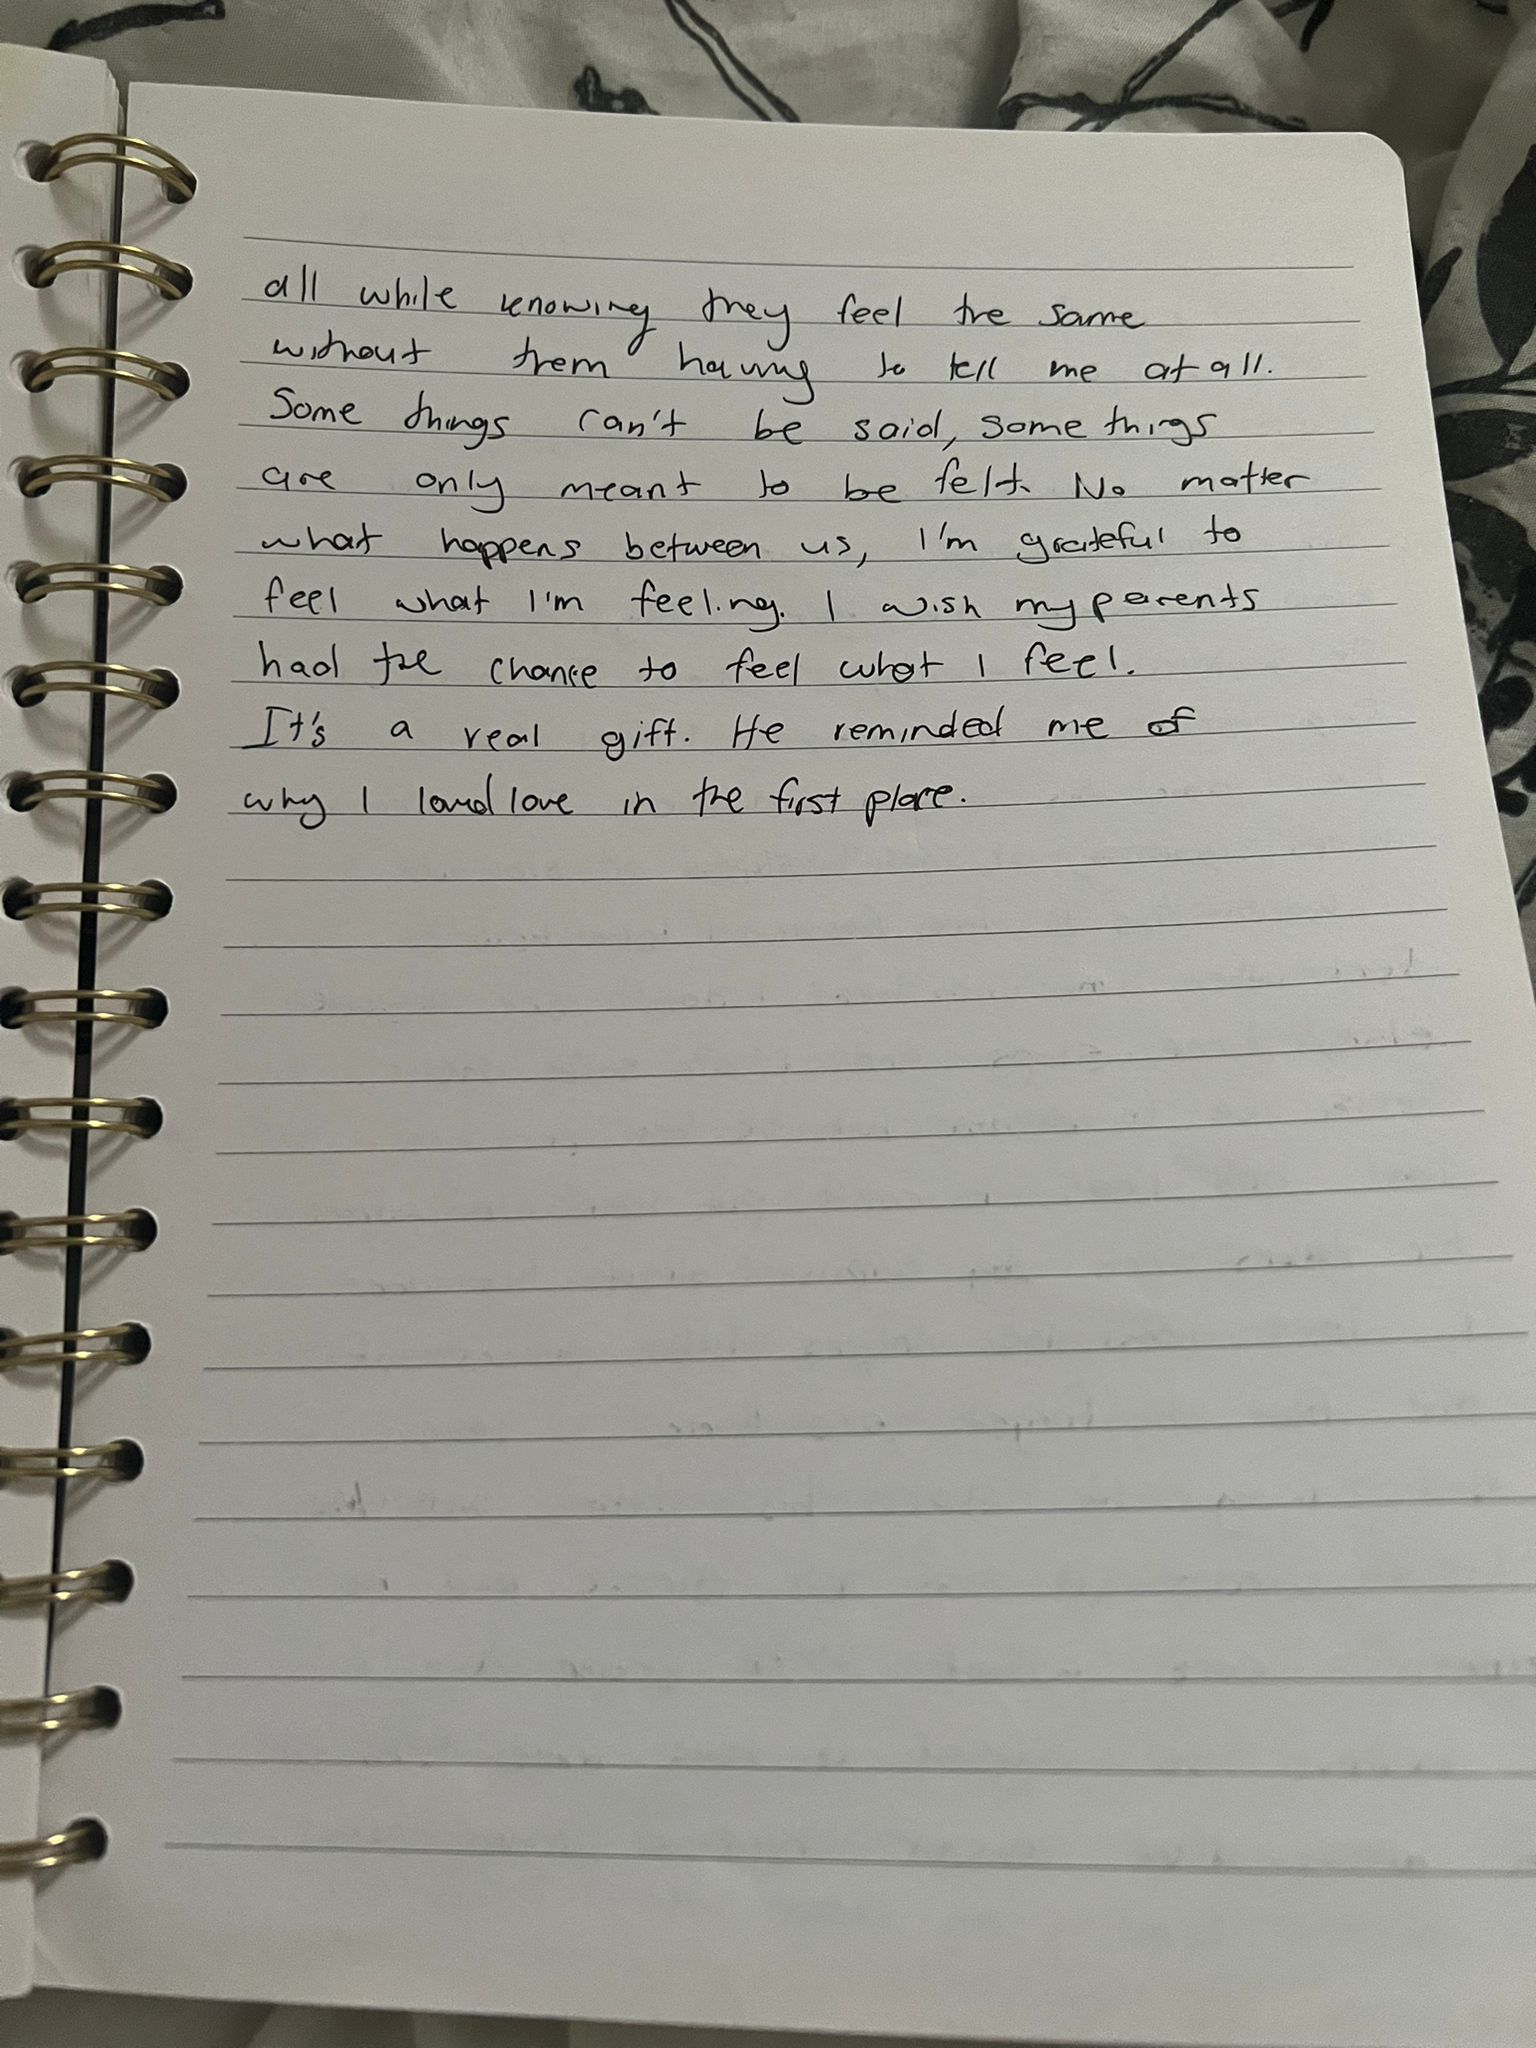 all while knowing they feel the same
without them having to tell me at all.
Some things can't be said, some things
are only meant to be felt. No matter
what happens between us, I'm grateful to
feel what I'm feeling. I wish my parents
had the chance to feel what I feel.
It's a real gift. He reminded me of
why I loved love in the first place.